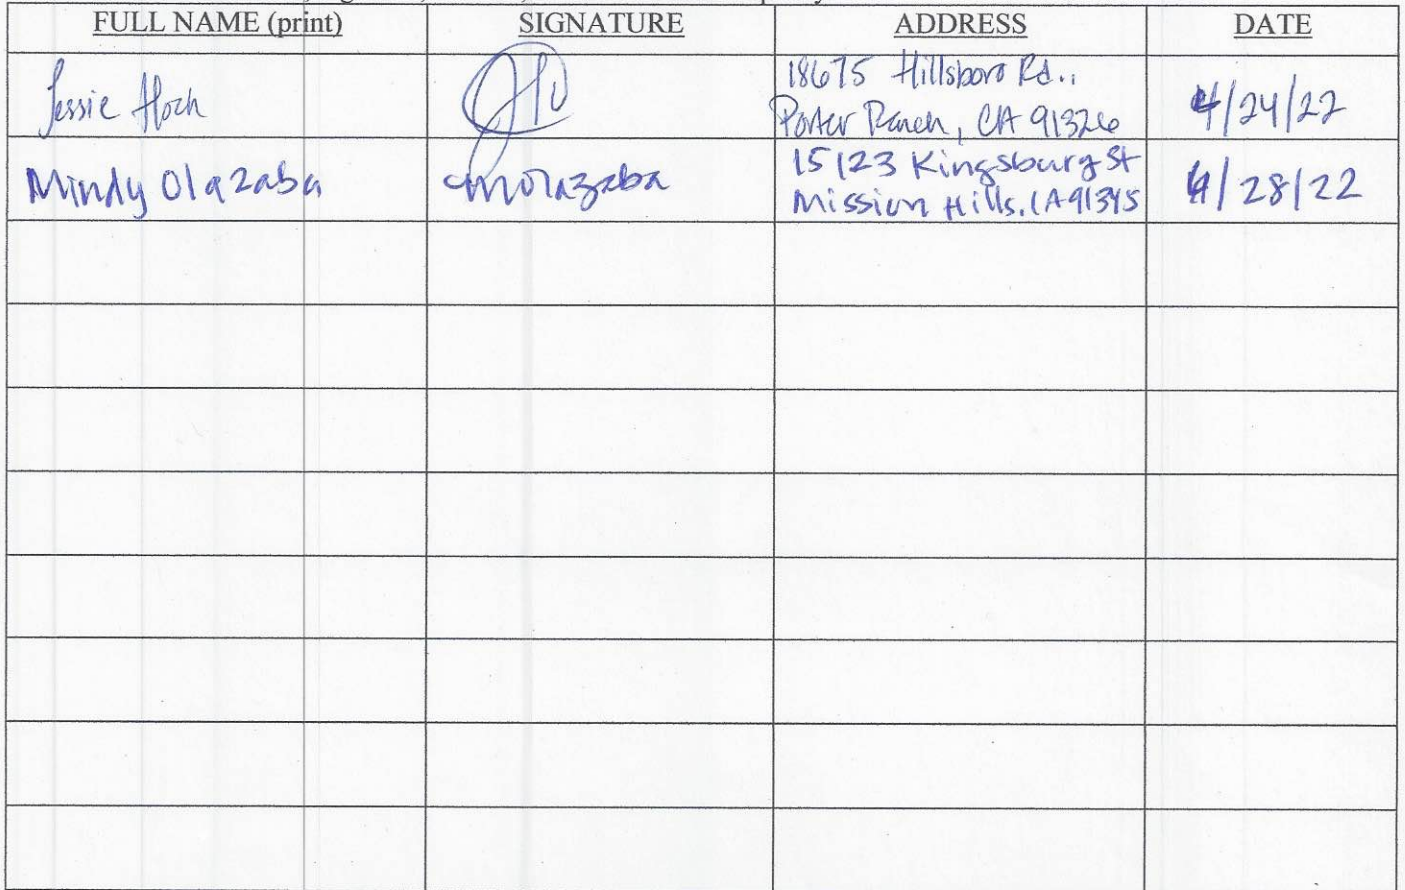 FULL NAME (print) SIGNATURE ADDRESS DATE
Jessie Hoch
18675 Hillsboro Rd.,
Porter Ranch, CA 91326
4/24/22
Mindy Olazaba
molazaba
15123 Kingsburg St
Mission Hills. CA 91345
4/28/22